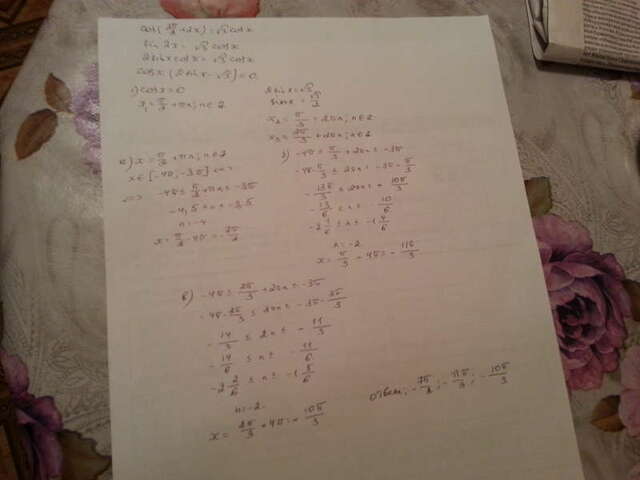 cos(3π/2 + 2x) = √3 cosx
sin 2x = √3 cosx
2sinxcosx = √3 cosx
cosx (2sinx - √3) = 0
1) cosx = 0
x₁ = π/2 + πn; n∈Z
2sinx = √3
sinx = √3/2
x₂ = π/3 + 2πn; n∈Z
x₃ = 2π/3 + 2πn; n∈Z
а) x = π/2 + πn; n∈Z
x∈[-4π; -3π] <=>
<=> -4π ≤ π/2 + πn ≤ -3π
-4,5 ≤ n ≤ -3,5
n = -4
x = π/2 - 4π = -7π/2
б) -4π ≤ π/3 + 2πn ≤ -3π
-4π - π/3 ≤ 2πn ≤ -3π - π/3
-13π/3 ≤ 2πn ≤ -10π/3
-13/6 ≤ n ≤ -10/6
-2 1/6 ≤ n ≤ -1 4/6
n = -2
x = π/3 - 4π = -11π/3
в) -4π ≤ 2π/3 + 2πn ≤ -3π
-4π - 2π/3 ≤ 2πn ≤ -3π - 2π/3
-14/3 ≤ 2n ≤ -11/3
-14/6 ≤ n ≤ -11/6
-2 2/6 ≤ n ≤ -1 5/6
n = -2
x = 2π/3 - 4π = -10π/3
Ответ: -7π/2; -11π/3; -10π/3